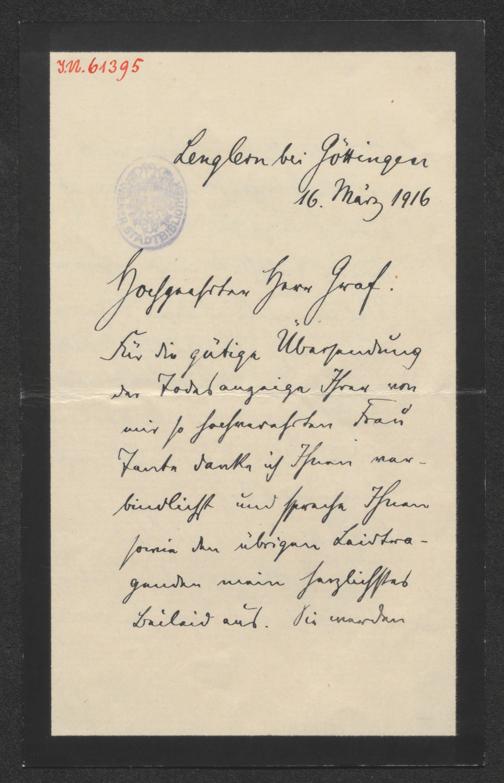 J.N. 61395
STADTBIBLIOTHEK
Lenglern bei Göttingen
16. März 1916
Hochgeehrter Herr Graf.
Für die gütige Übersendung
der Todesanzeige Ihrer von
mir so hochverehrten Frau
Tante danke ich Ihnen ver-
bindlichst und spreche Ihnen
sowie den übrigen Leidtra-
genden mein herzlichstes
Beileid aus. Sie werden